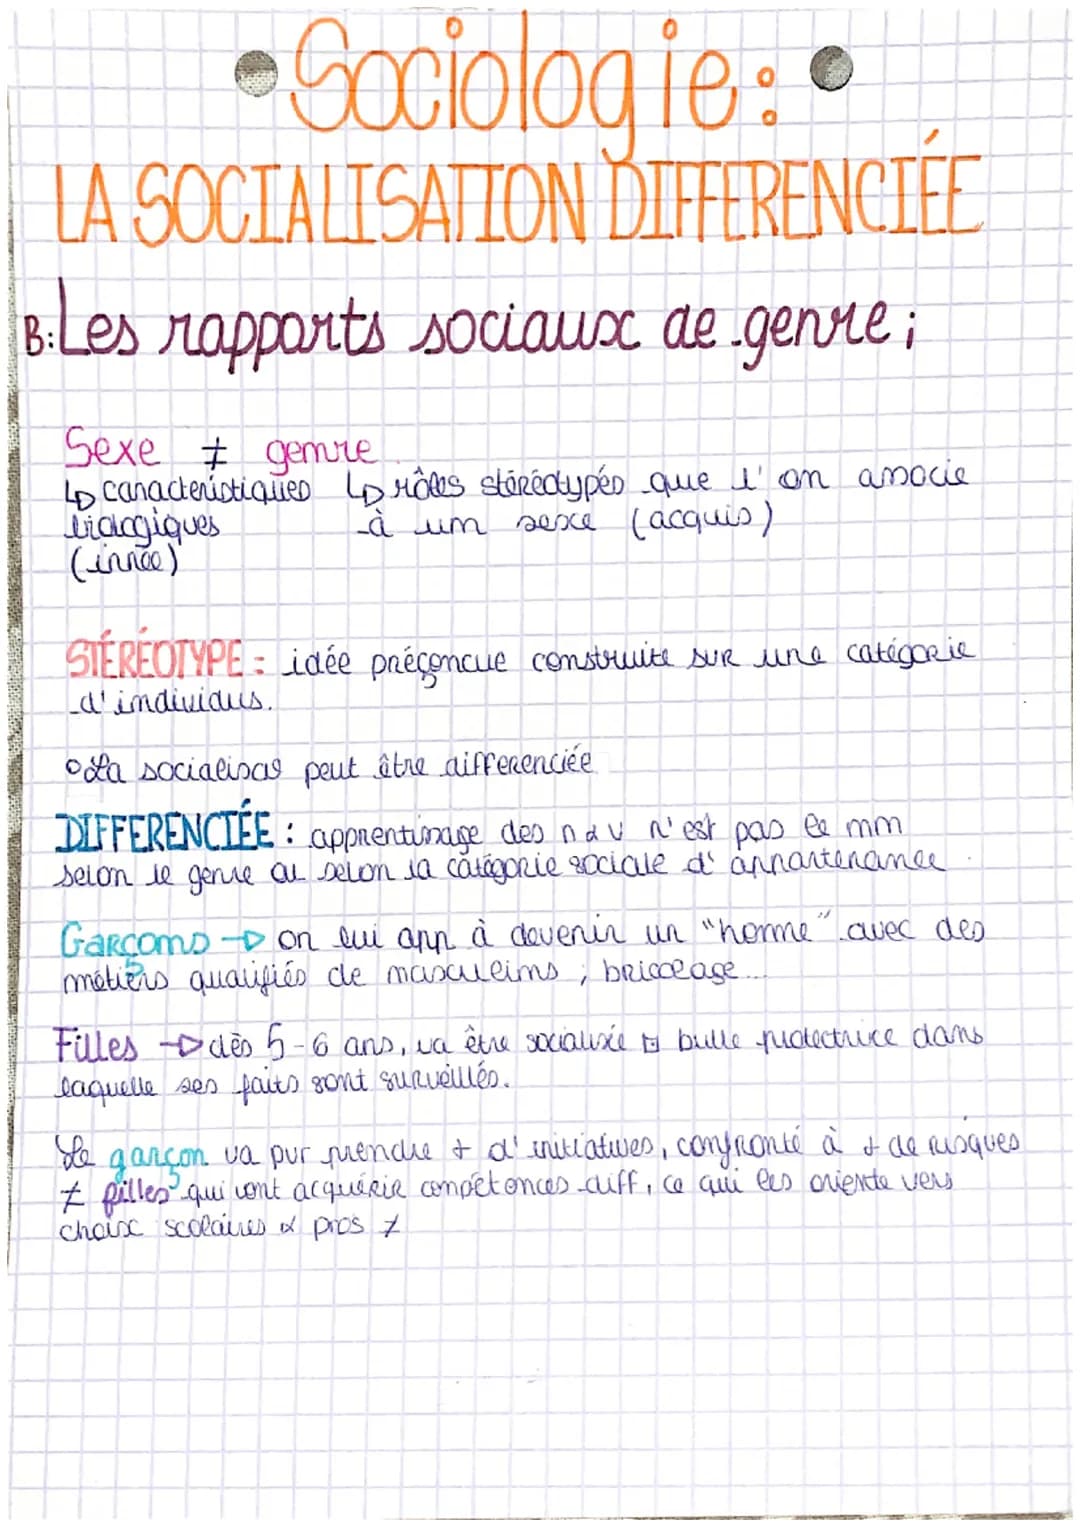 Sociologie:
LA SOCIALISATION DIFFERENCIÉE
B: Les rapports sociaux de genre ;
Sexe ≠ genre
↳ caractéristiques ↳ rôles stéréotypés que l'on associe
biologiques à un sexe (acquis)
(innée)
STÉRÉOTYPE : idée préconçue construite sur une catégorie
d'individus.
La socialisa° peut être differenciée
DIFFERENCIÉE : apprentissage des n & v n'est pas le mm
selon le genre ou selon la catégorie sociale d'appartenance.
Garçons → on lui app à devenir un "homme" avec des
métiers qualifiés de masculins, bricolage...
Filles → dès 5-6 ans, va être socialisée ds bulle protectrice dans
laquelle ses faits sont surveillés.
Le garçon va pvr prendre + d'initiatives, confronté à + de risques
≠ filles qui vont acquérir compétences diff, ce qui les oriente vers
choix scolaires & pros ≠